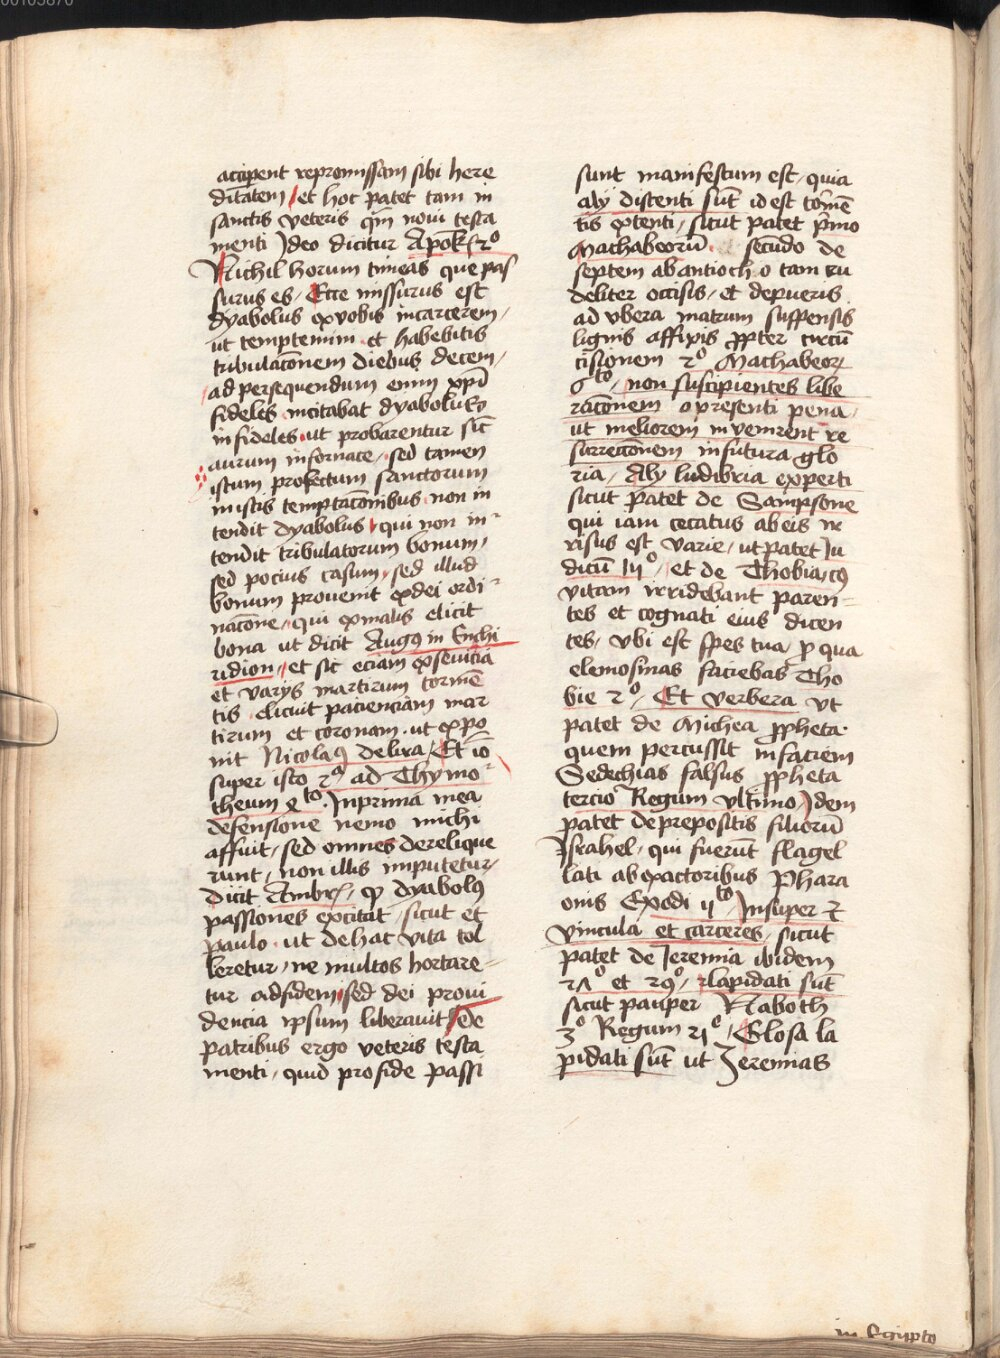 accipient repromissam sibi here
ditatem / et hoc patet tam in
sanctis veteris qm̄ noui testa
menti Ideo dicitur Apok 2º
Nichil horum timeas que pas
surus es / Ecce missurus est
dyabolus ex vobis in carcerem /
ut temptemini et habebitis
tribulacōnem diebus decem /
ad persequendum enim xpī
fideles incitabat dyabolus
infideles ut probarentur sic̄
aurum in fornace / sed tamen
istum profectum sanctorum
in istis temptacōnibus non in
tendit dyabolus / qui non in-
tendit tribulatorum bonum /
sed pocius casum / sed illud
bonum prouenit ex dei ordi-
nacōne / qui ex malis elicit
bona ut dicit Augꝯ in Enchi
ridion / et sic eciam ex seuicia
et varys martirum tormē
tis elicuit pacienciam mar
tirum et coronam ut expo
nit Nicolaꝯ de lira / Et iō
super isto 2ª ad Thymo-
theum 4to. In prima mea
defensione nemo michi
affuit / sed omnes derelique
runt / non illis imputetur /
dicit Ambrꝭ / ꝙ dyabolꝯ
passiones excitat / sicut et
paulo ut de hac vita tol
leretur / ne multos hortare-
tur ad fidem / sed dei proui
dencia ipsum liberauit / De
patribus ergo veteris testa
menti / quid pro fide passi
sunt manifestum est / quia
aly distenti sūt id est tormē
tis extenti / sicut patet p̄mo
Machabeorū secūdo de
septem ab antiocho tam cru
deliter occisis / et de pueris
ad vbera matrum suspensis
lignis affixis ꝓpter circū
cisionem 2º Machabeorꝝ
6to / non suscipientes libe
racōnem a presenti pena /
ut meliorem invenirent re
surreccōnem in futura glo
ria / Aly ludibria experti
sicut patet de Sampsone
qui iam cecatus ab eis ir
risus est varie / ut patet Iu
dicū / et de Thobia / cꝯ
vitam irridebant paren-
tes et cognati eius dicen
tes / vbi est spes tua / ꝑ qua
elemosinas faciebas Tho
bie 2º / Et verbera vt
patet de Michea ꝓpheta
quem percussit in faciem
Sedechias falsus ꝓpheta
tercio Regum vltimo / Idem
patet de prepositis filiorū
Israhel / qui fuerūt flagel
lati ab exactoribus Phara
onis Exodi / Insuper et
vincula et carceres / sicut
patet de Ieremia ibidem
et 29º / lapidati sūt
sicut pauper Naboth
3º Regum 21º / Glosa la
pidati sūt ut Ieremias
in Egipto